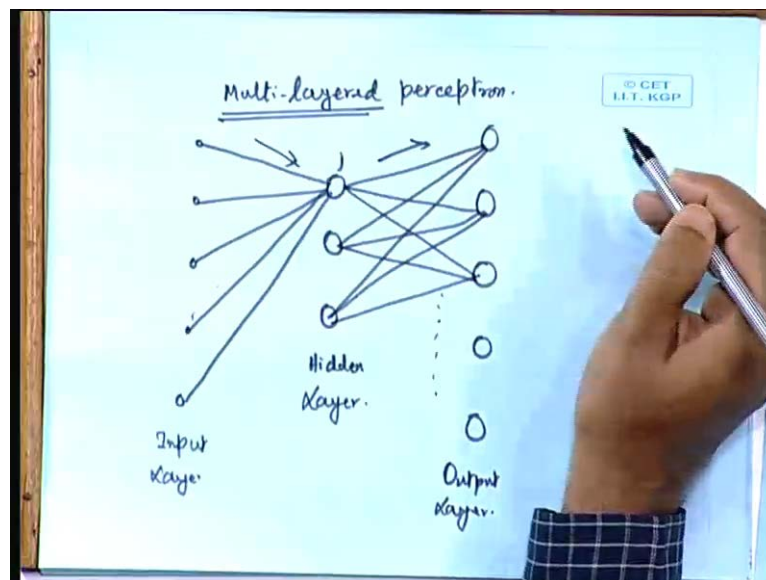 Multi-layered perceptron.
© CET
I.I.T. KGP
Hidden
Layer.
Input
Laye.
Output
Layer.